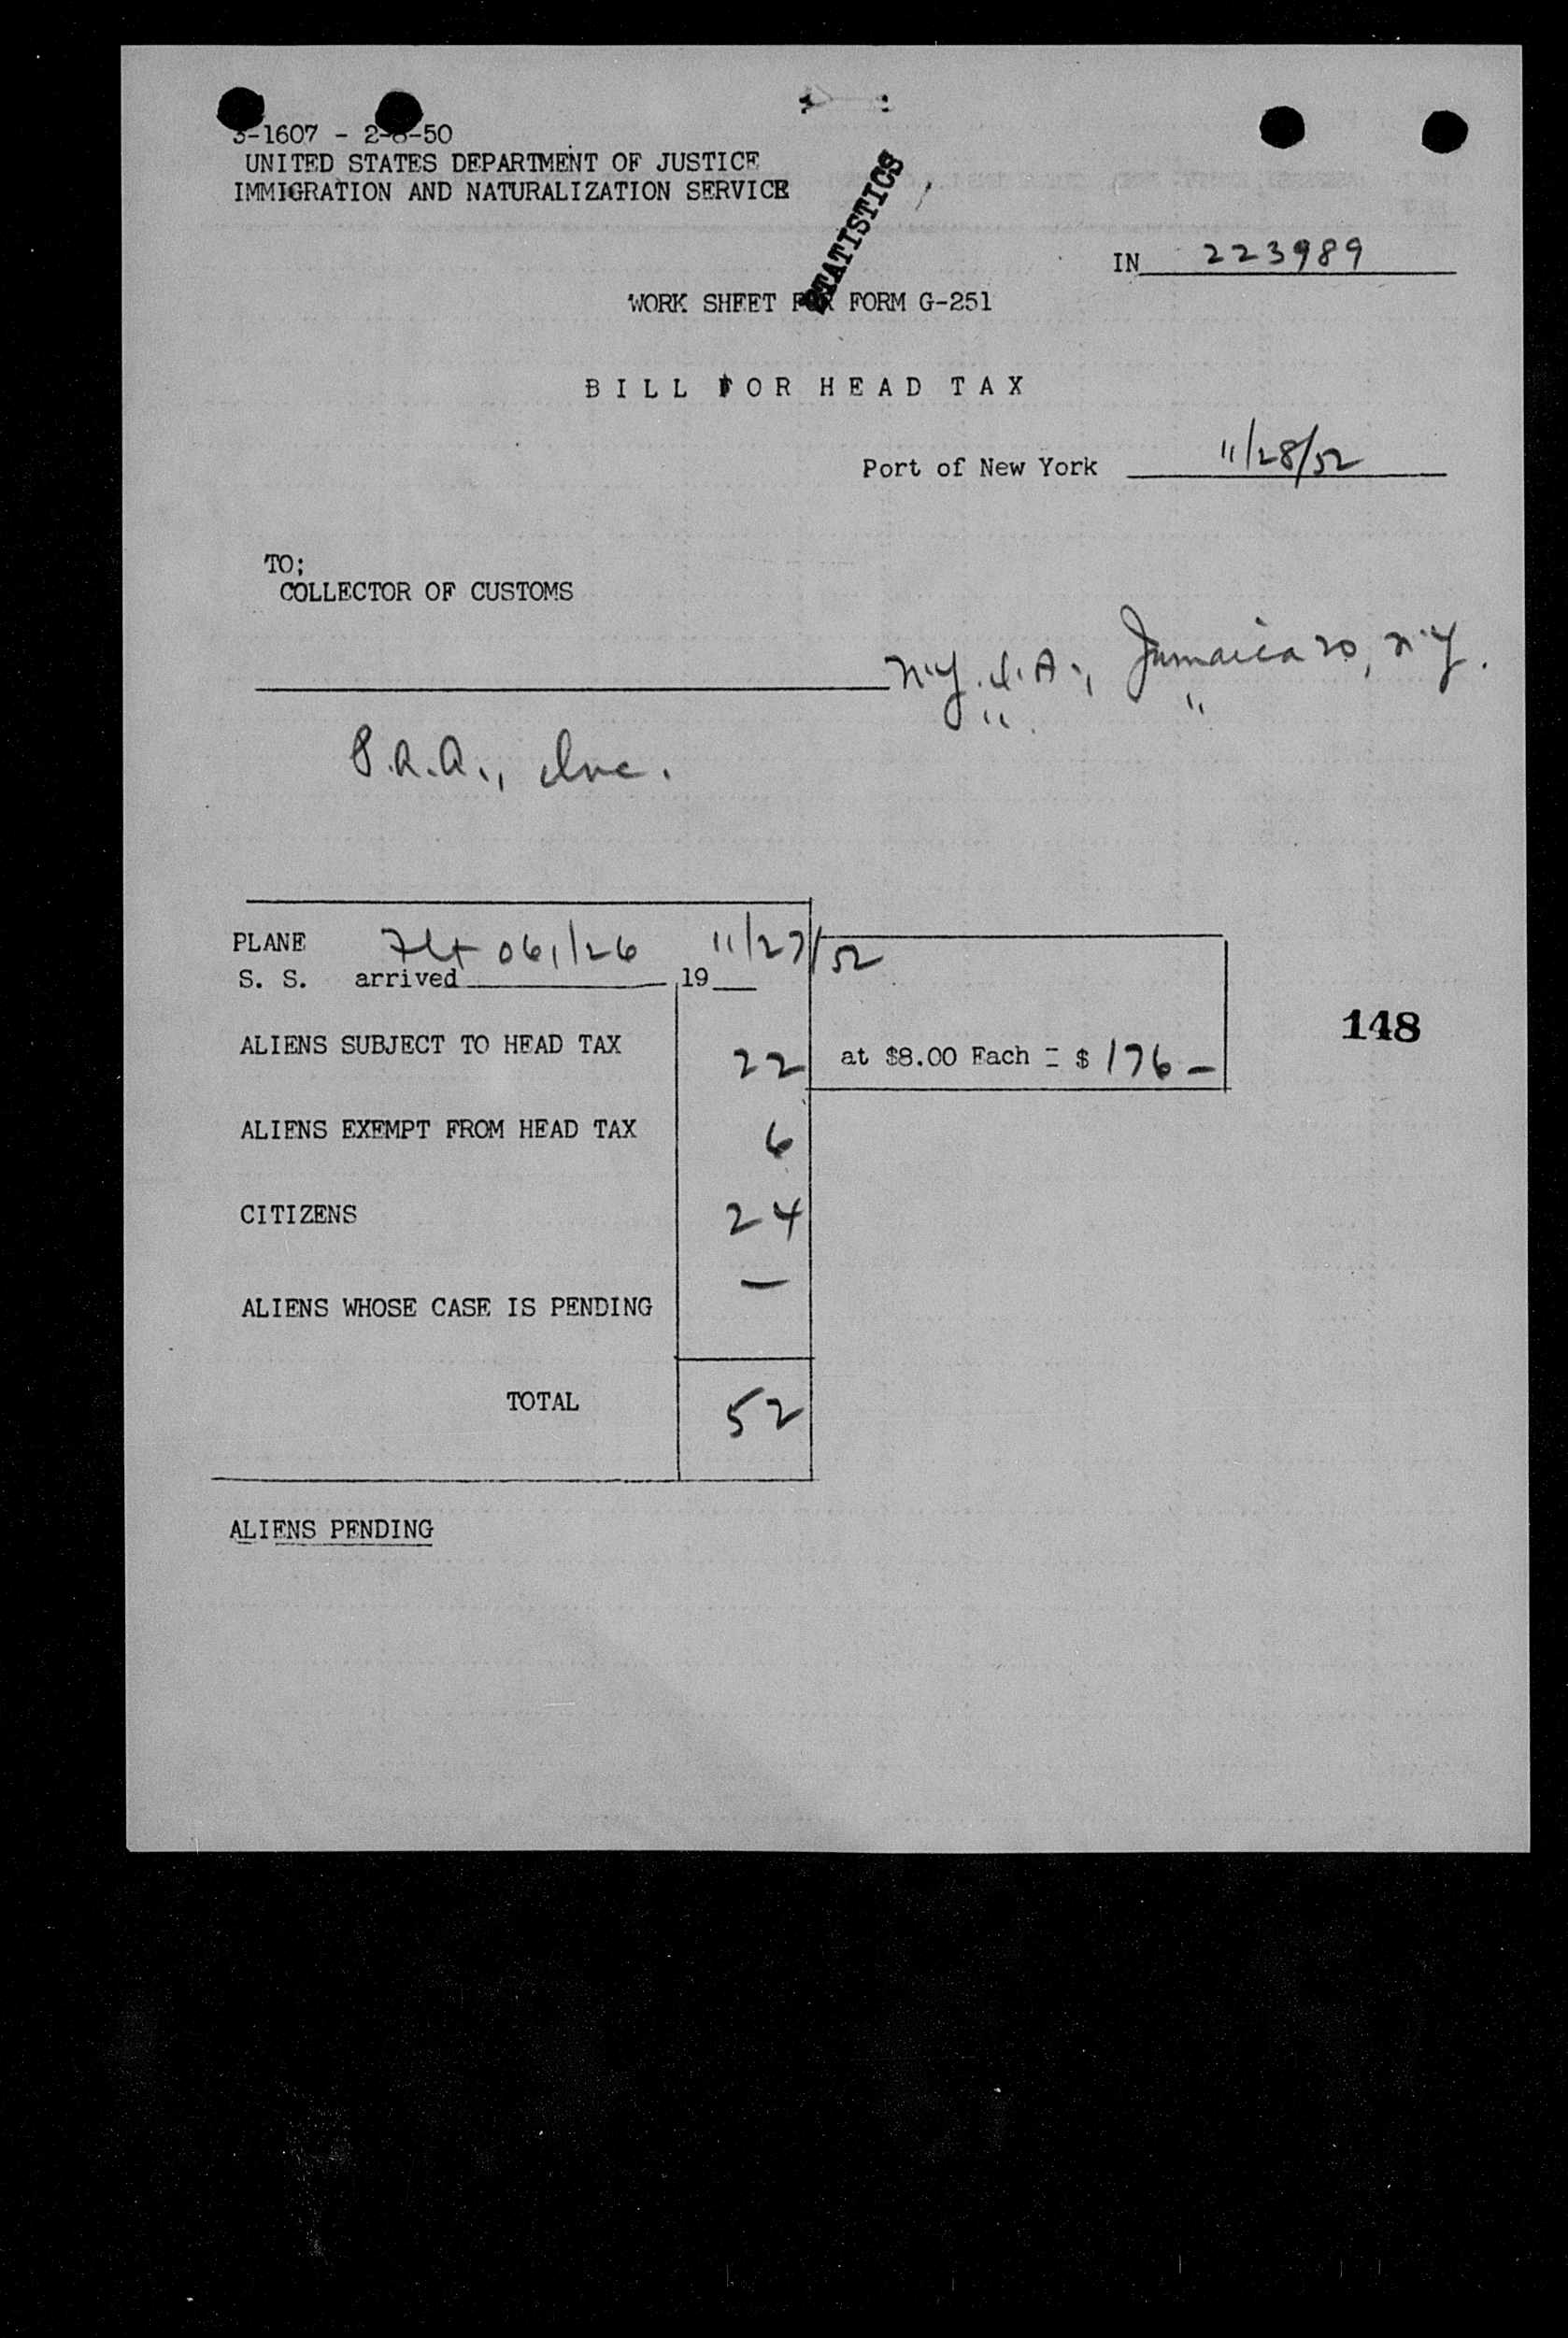 3-1607 - 2-8-50
UNITED STATES DEPARTMENT OF JUSTICE
IMMIGRATION AND NATURALIZATION SERVICE
STATISTICS
IN 223989
WORK SHEET FOR FORM G-251
BILL FOR HEAD TAX
Port of New York 11/28/52
TO;
COLLECTOR OF CUSTOMS
N.Y.I.A., Jamaica 20, N.Y.
" "
P.A.A., Inc.
PLANE Flt 061/26 11/27/52
S. S. arrived 19
ALIENS SUBJECT TO HEAD TAX 22 at $8.00 Each = $ 176 -
148
ALIENS EXEMPT FROM HEAD TAX 6
CITIZENS 24
ALIENS WHOSE CASE IS PENDING —
TOTAL 52
ALIENS PENDING